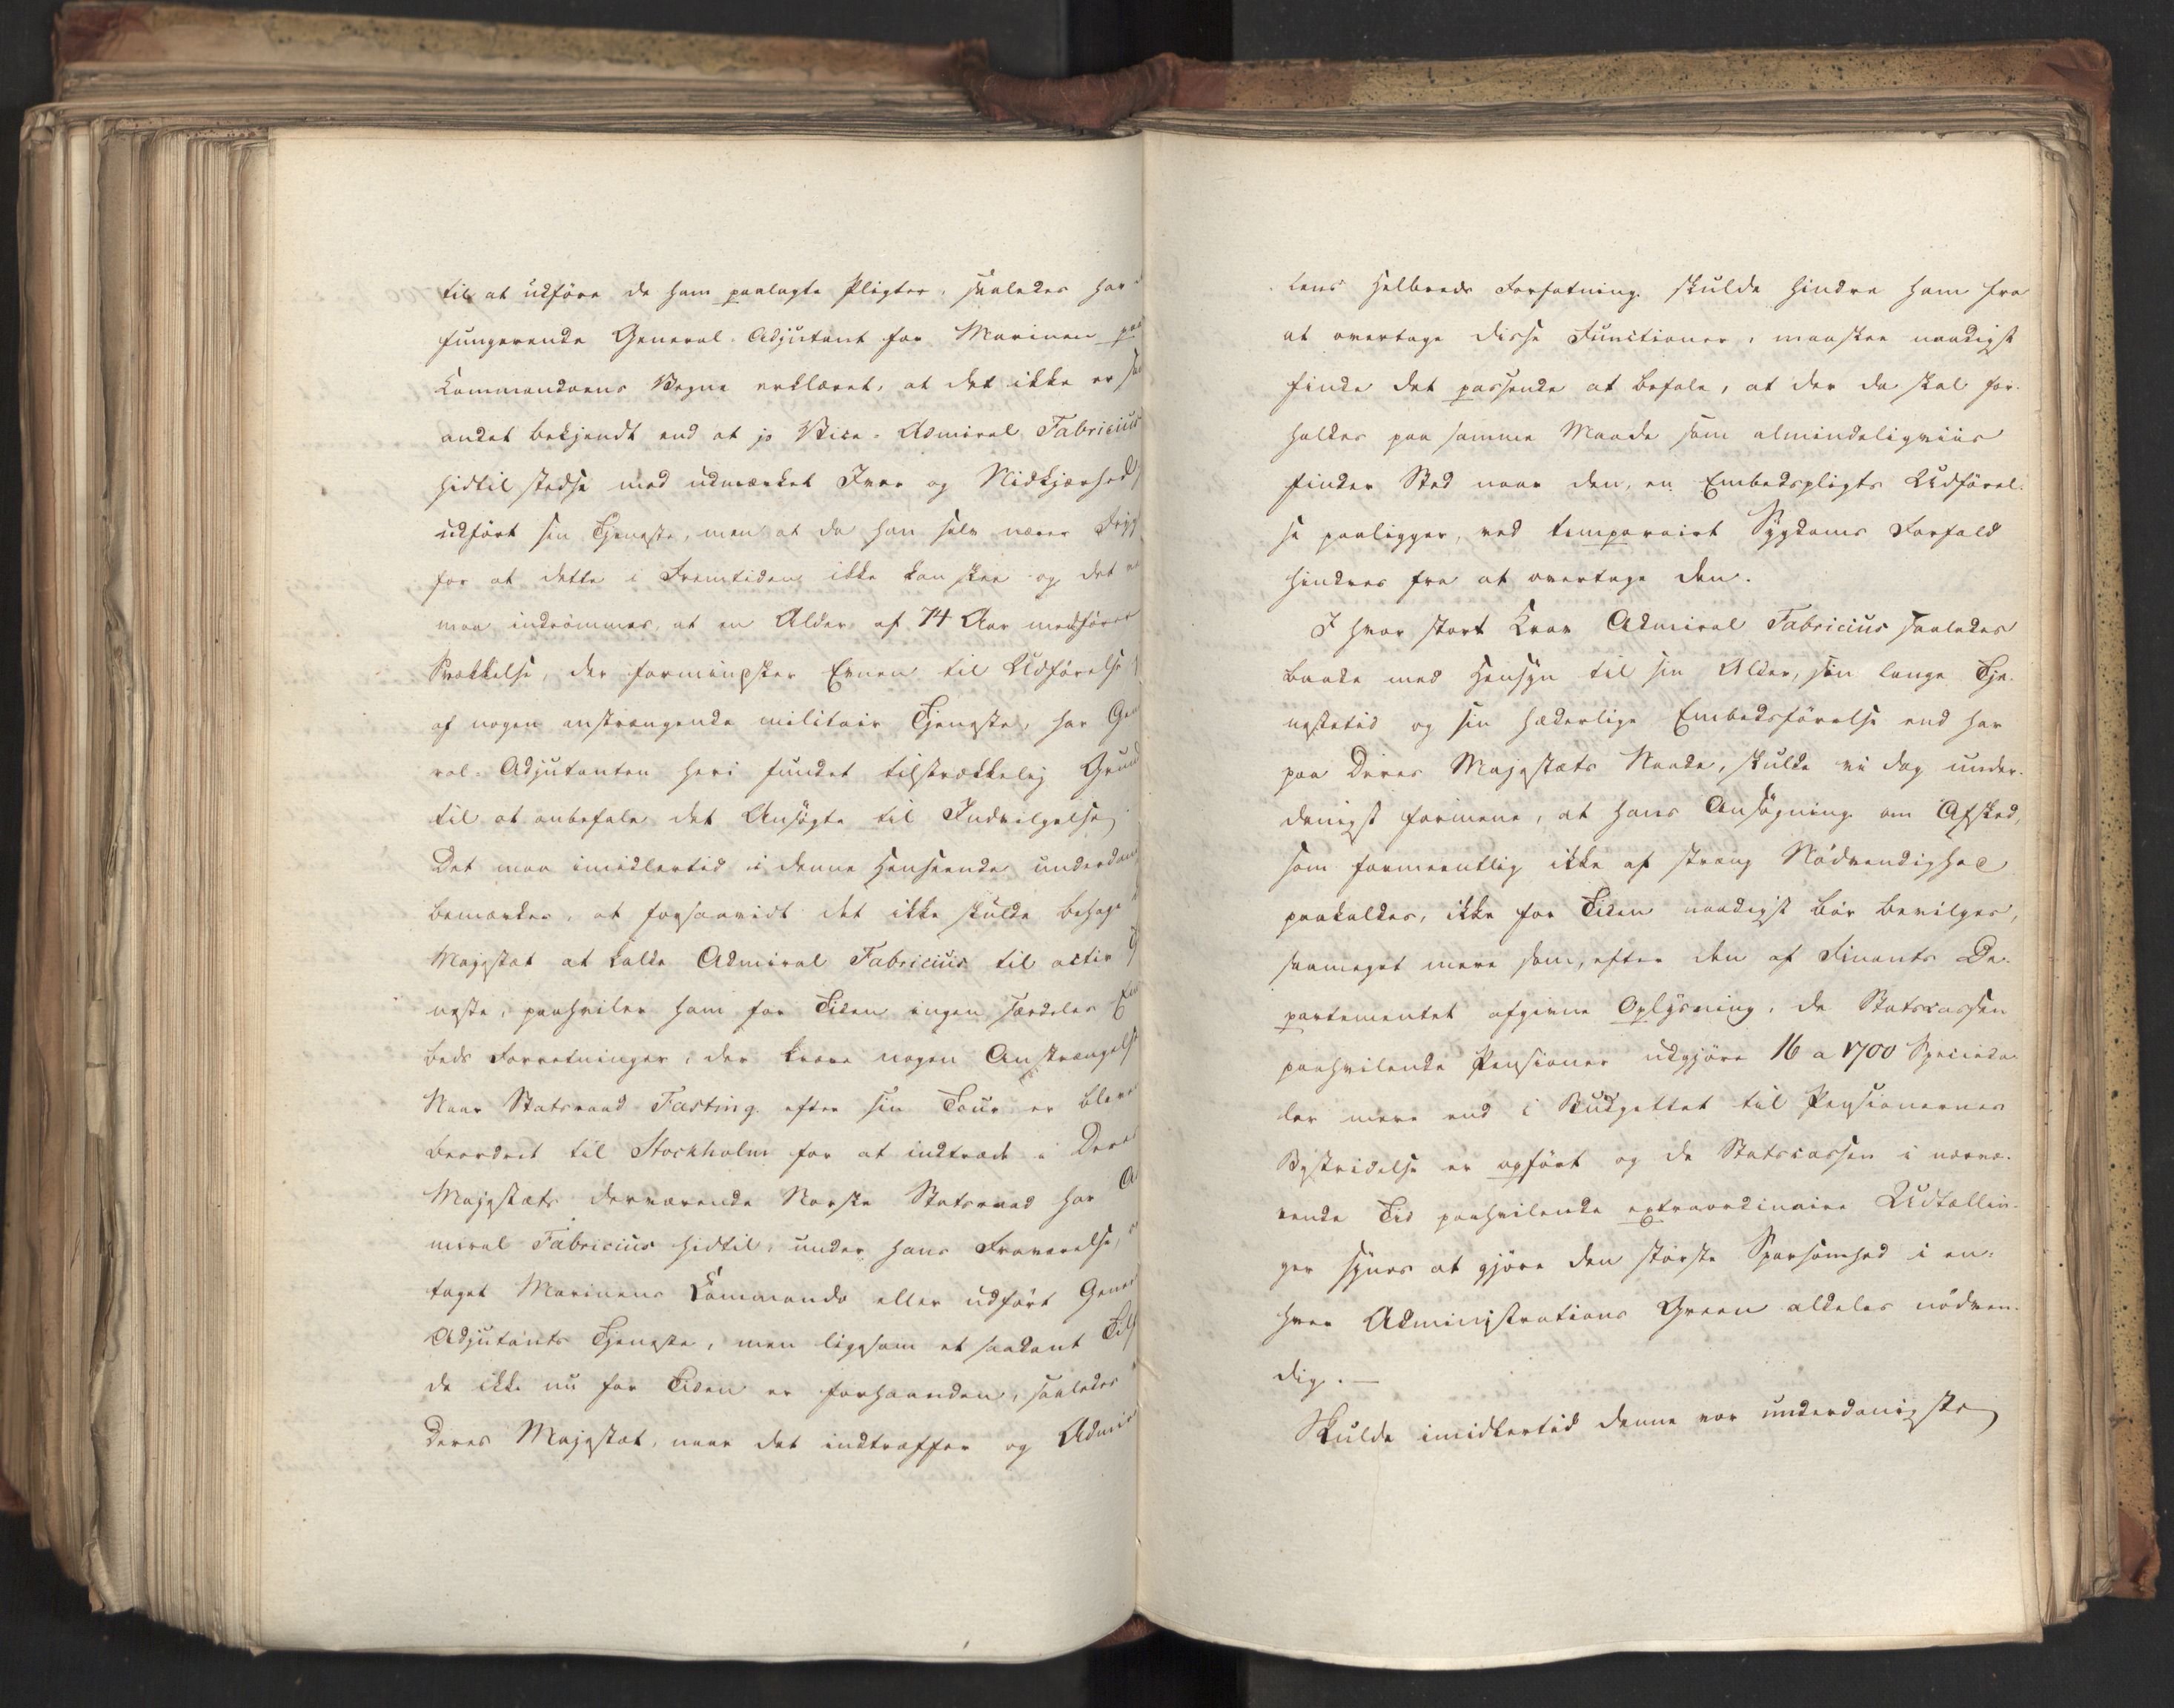 til at udføre de ham paalagte Pligter, saaledes har
fungerende General-Adjutant for Marinen paa
Commandoens Vegne erklæret, at det ikke er
andet bekjendt end at jo Vice-Admiral Fabricius
hidtil stedse med udmærket Iver og Nidkjærhed
udført sin Tjeneste, men at da han selv nærer Frygt
for at dette i Fremtiden ikke kan skee og det
maa indrømmes, at en Alder af 74 Aar medfører
Svækkelse, der forminsker Evnen til Udførelse
af nogen anstrængende militair Tjeneste, har Gene
ral-Adjutanten heri fundet tilstrækkelig Grund
til at anbefale det Ansøgte til Indvilgelse
Det maa imidlertid i denne Henseende underdan
bemærkes, at forsaavidt det ikke skulde behage
Majestæt at kalde Admiral Fabricius til activ Tj
neste, paahviler ham for Tiden ingen særdeles Em
beds Forretninger, der kræve nogen Anstrængelse
Naar Statsraad Fasting efter sin Tour er bleven
beordret til Stockholm for at indtræde i Deres
Majestæts derværende Norske Statsraad har Ad
miral Fabricius hidtil, under hans Fraværelse,
taget Marinens Commando eller udført General
Adjutants Tjeneste, men ligesom et saadant Tilf
de ikke nu for Tiden er forhaanden, saaledes
Deres Majestæt, naar det indtræffer og Admira
lens Helbreds Forfatning skulde hindre ham fra
at overtage disse Functioner, maaskee naadigst
finde det passende at befale, at der da skal for-
holdes paa samme Maade som almindeligviis
finder Sted naar den, en Embedspligts Udførel-
se paaligger, ved temporairt Sygdoms Forfald
hindres fra at overtage den.
I hvor stort Krav Admiral Fabricius saaledes
baade med Hensyn til sin Alder, sin lange Tje-
nestetid og sin hæderlige Embedsførelse end har
paa Deres Majestæts Naade, skulde vi dog under-
danigst formene, at hans Ansøgning om Afsked,
som formeentlig ikke af streng Nødvendighed
paakaldes, ikke for Tiden naadigst bør bevilges,
saameget mere som, efter den af Finants De-
partementet afgivne Oplysning, de Statscassen
paahvilende Pensioner udgjøre 16 a 1700 Specieda-
ler mere end i Budgettet til Pensionernes
Bestridelse er opført og de Statscassen i nærvæ-
rende Tid paahvilende extraordinaire Udtællin-
ger synes at gjøre den største Sparsomhed i en-
hver Administrations Green aldeles nødven-
dig. —
Skulde imidlertid denne vor underdanigste